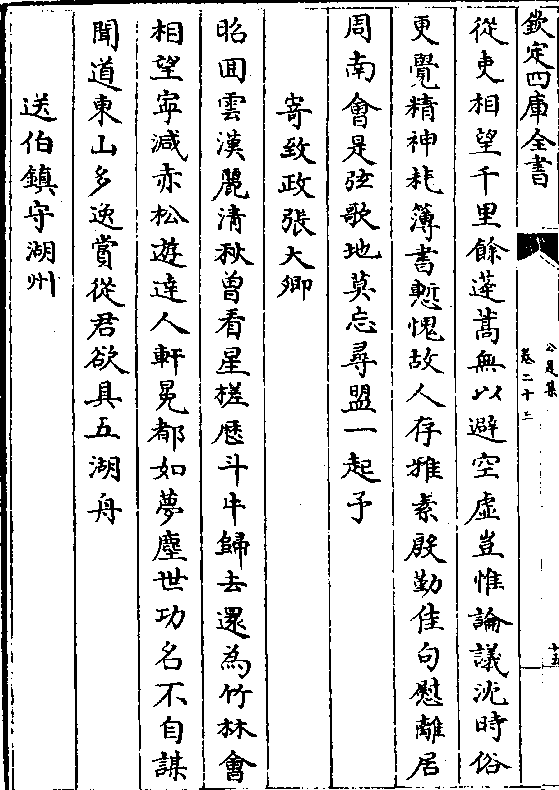 欽定四庫全書
公是集
卷二十三
十五
從吏相望千里餘蓬蒿無以避空虛豈惟論議沈時俗
更覺精神耗簿書慙愧故人存雅素殷勤佳句慰離居
周南㑹是弦歌地莫忘尋盟一起予
寄致政張大卿
昭囬雲漢麗清秋曽看星槎歴斗牛歸去還為竹林㑹
相望寜減赤松遊達人軒冕都如夢塵世功名不自謀
聞道東山多逸賞從君欲具五湖舟
送伯鎮守湖州